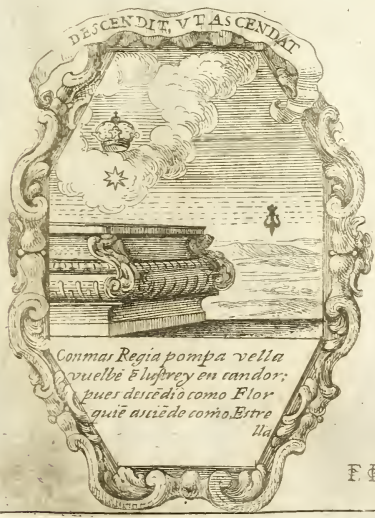 DESCENDIT, VT ASCENDAT
Con mas Regia pompa vella
vuelbe ē lustre y en candor;
pues descēdio como Flor
quiē asciēde como. Estre
lla
F.